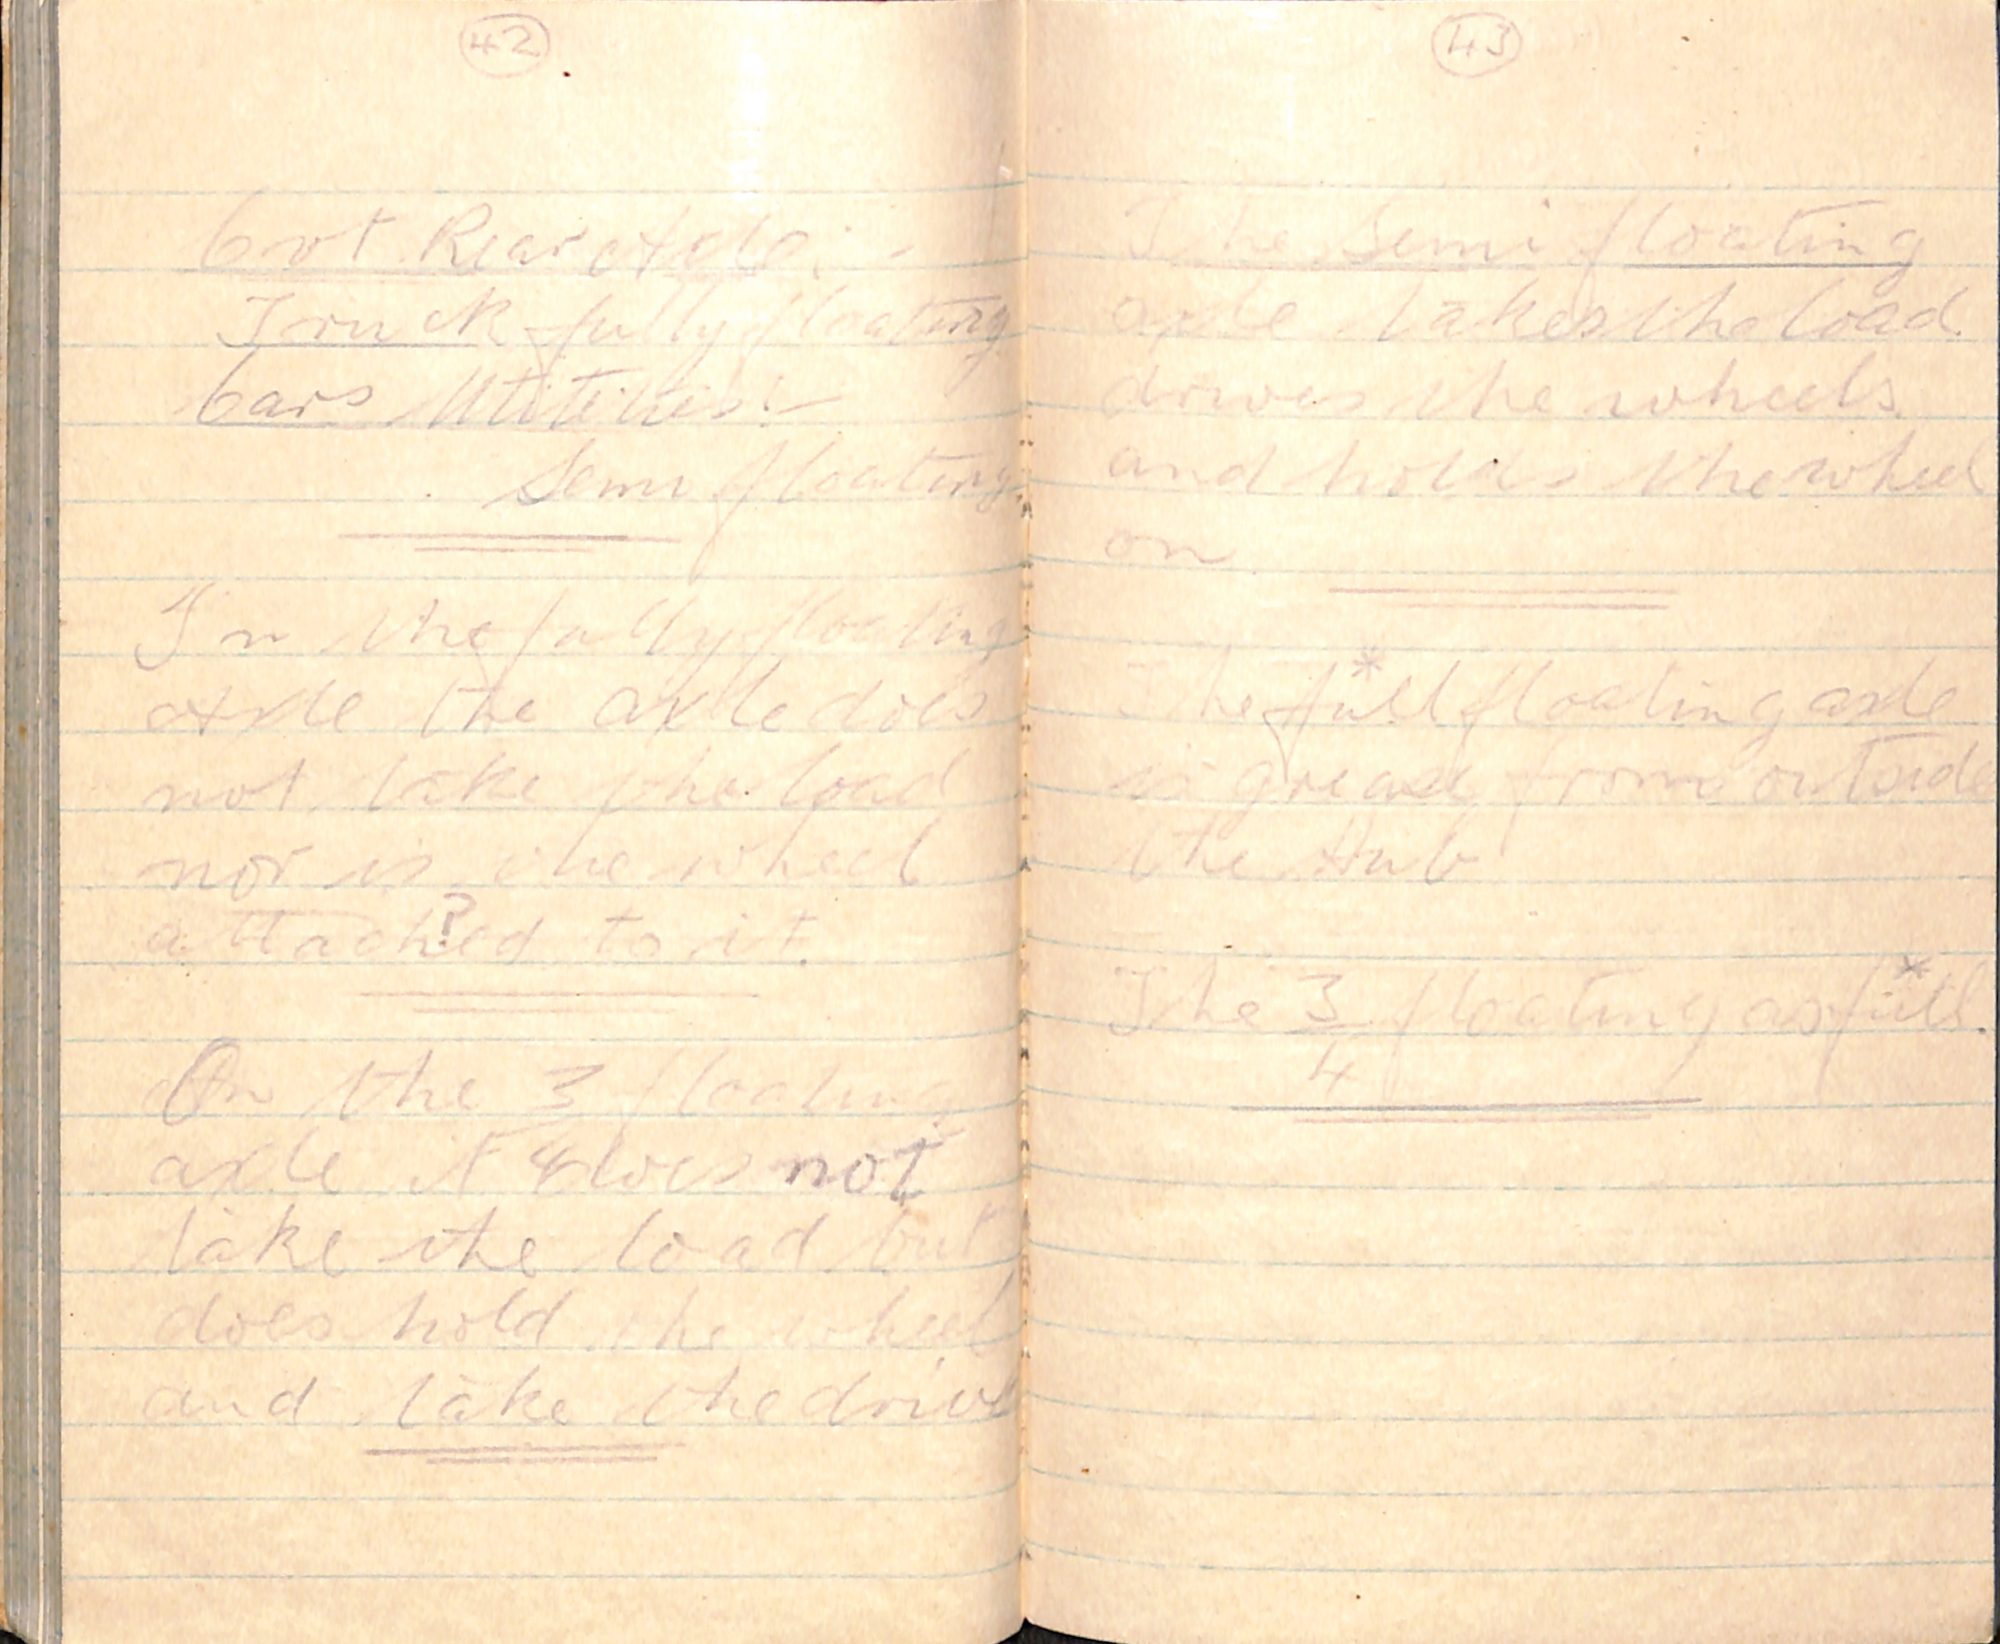 42
Rear Axle:-
Truck fully floating
Cars Utilities:-
Semi floating.
In the fully floating
Axle the axle does
not take the load
nor is the wheel
attached to it.
?
On the 3/4 floating
axle it does not
take the load but
does hold the wheel
and take the drive
43
The Semi floating
axle takes the load.
drives the wheels
and holds the wheel
on
*
The full floating axle
is from outside
the Hub
*
The 3/4 floating as full.